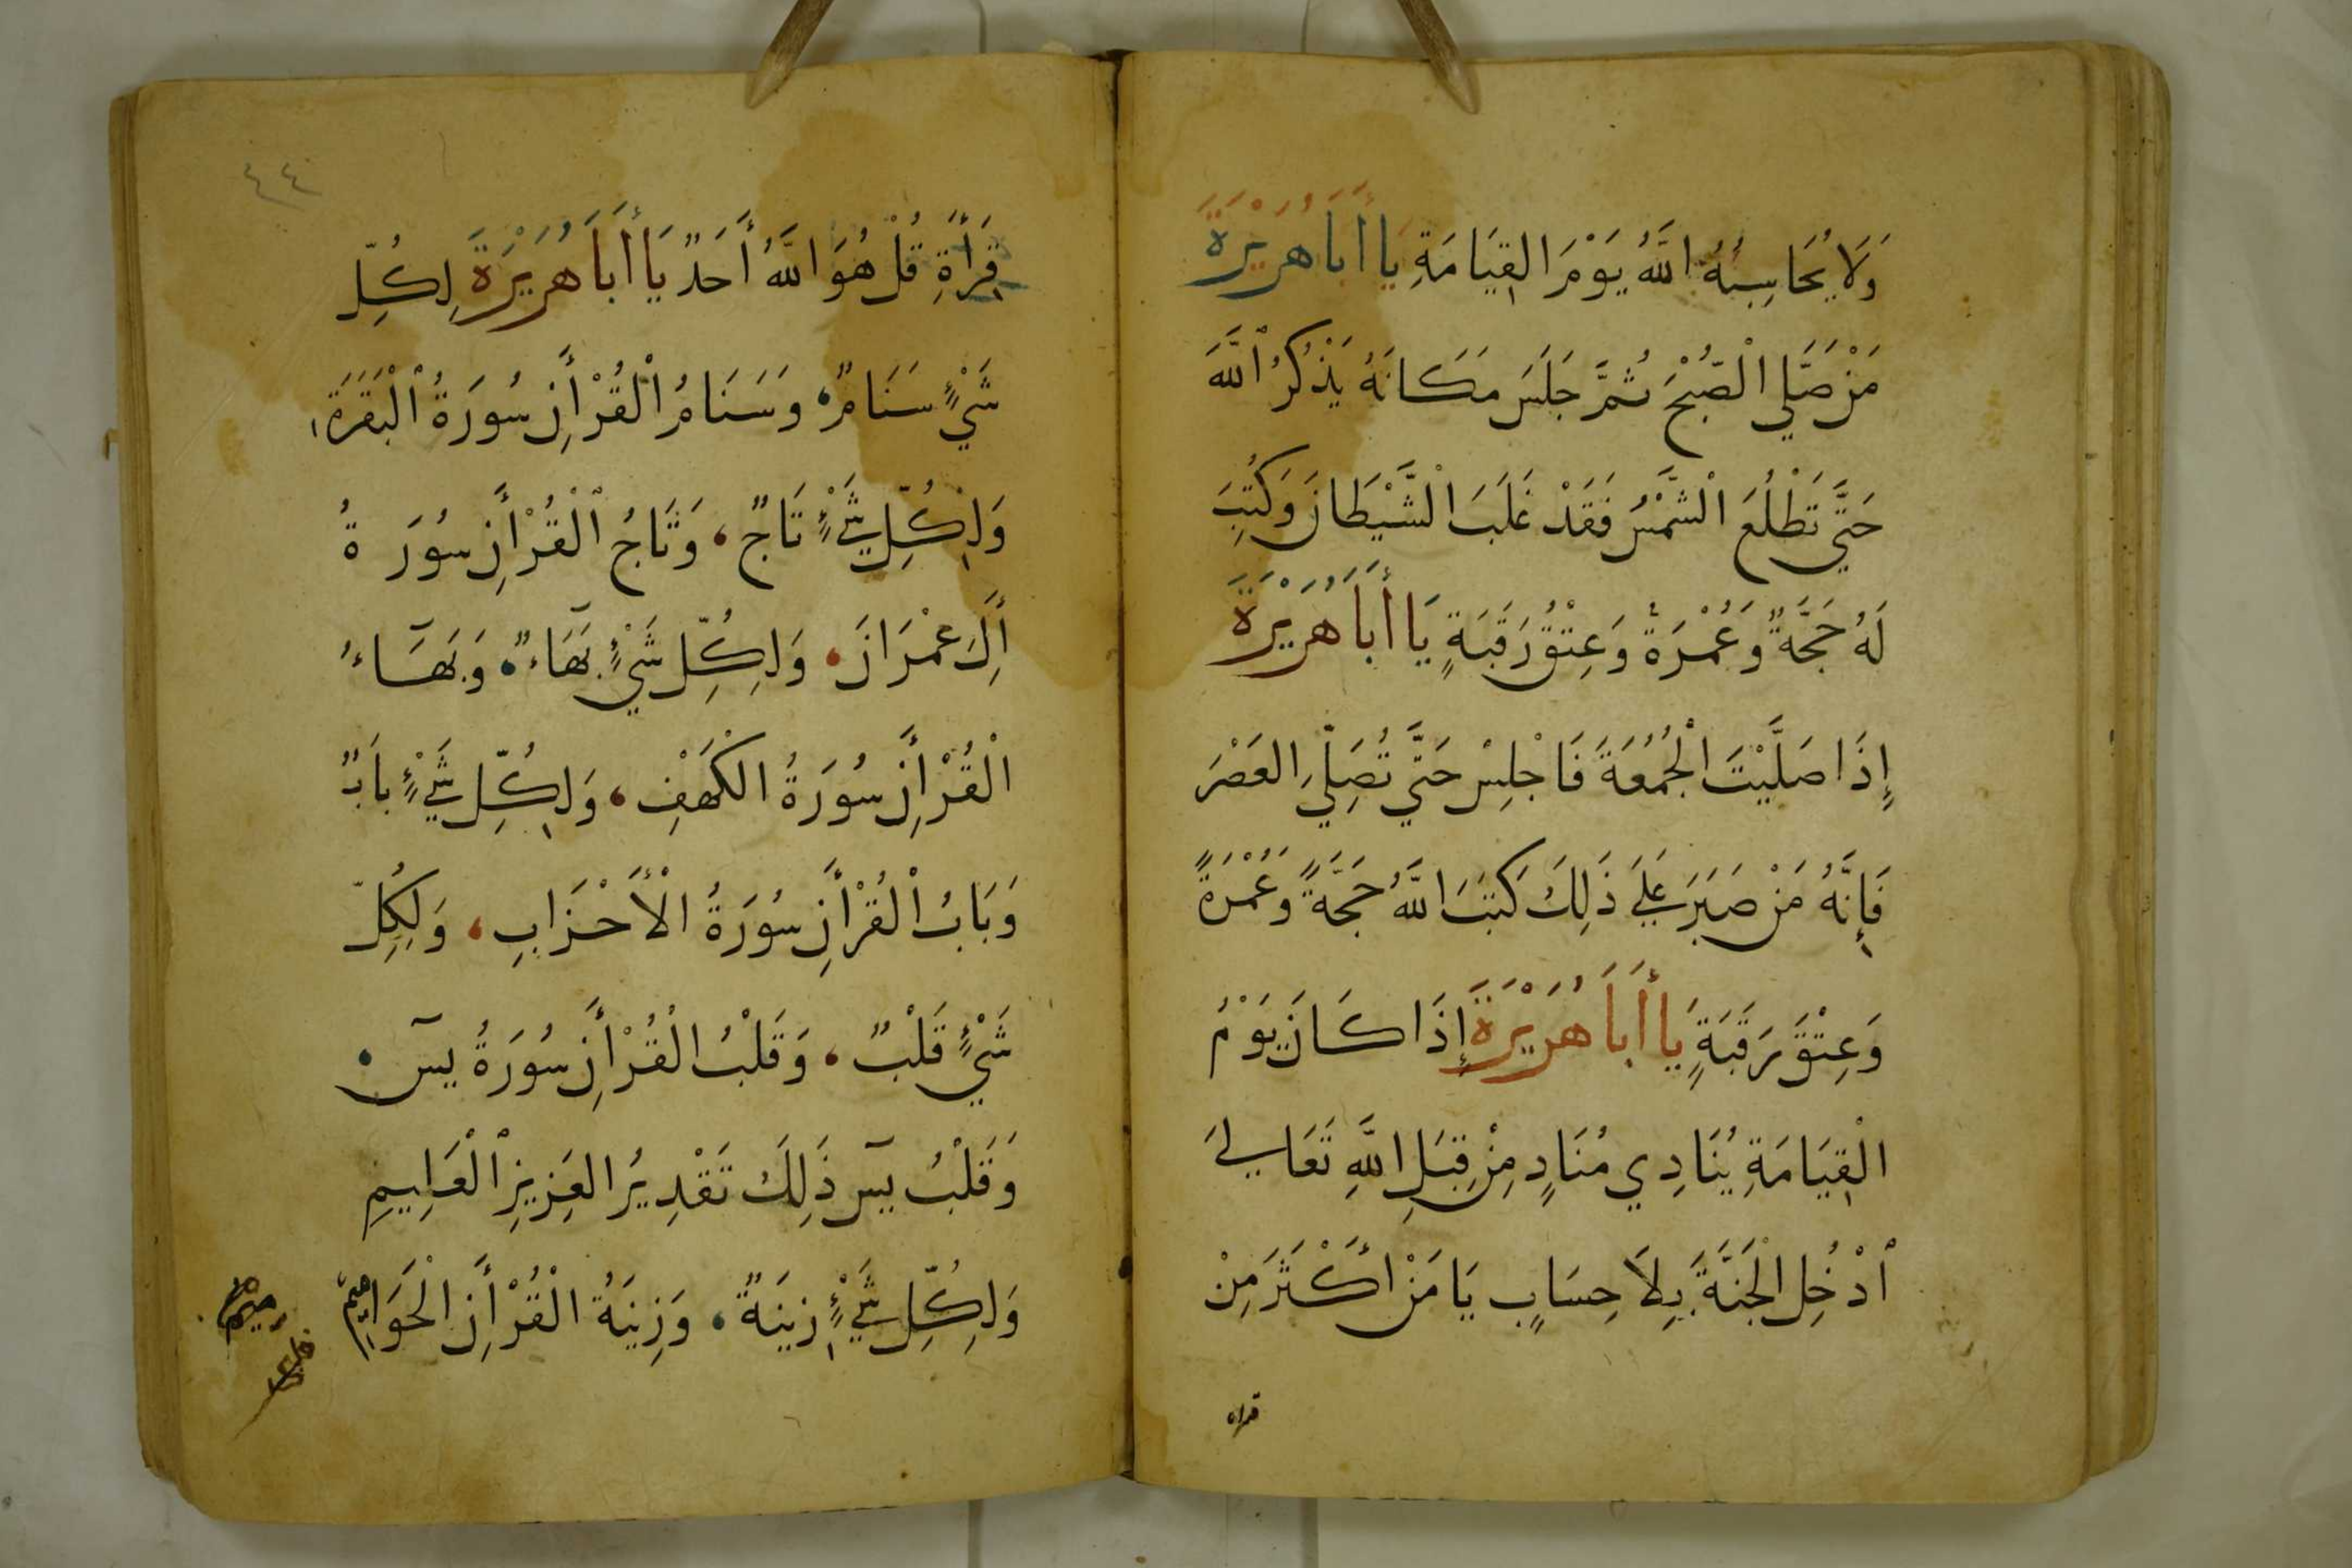 وَلَا يُحَاسِبُهُ اللَّهُ يَوْمَ الْقِيَامَةِ يَا أَبَا هُرَيْرَةَ
مَنْ صَلَّي الْصُّبْحَ ثُمَّ جَلَسَ مَكَانَهُ يَذْكُرُ ٱللَّهَ
حَتَّي تَطْلُعَ الْشَّمْسُ فَقَدْ غَلَبَ الْشَّيْطَانَ وَكُتِبَ
لَهُ حَجَّةٌ وَعُمْرَةٌ وَعِتْقُ رَقَبَةٍ يَا أَبَا هُرَيْرَةَ
إِذَا صَلَّيْتَ الْجُمُعَةَ فَاجْلِسْ حَتَّي تُصَلِّيَ العَصْرَ
فَإِنَّهُ مَنْ صَبَرَ عَلَي ذَلِكَ كَتَبَ اللَّهُ حَجَّةً وَعُمْرَةً
وَعِتْقَ رَقَبَةٍ يَا أَبَا هُرَيْرَةَ إِذَا كَانَ يَوْمُ
الْقِيَامَةِ يُنَادِي مُنَادٍ مِنْ قِبَلِ اللَّهِ تَعَالَي
ٱدْخُلِ الْجَنَّةَ بِلَا حِسَابٍ يَا مَنْ أَكْثَرَ مِنْ
قراة
٤٤
قِرَأَةِ قُلْ هُوَ اللَّهُ أَحَدٌ يَا أَبَا هُرَيْرَةَ لِكُلِّ
شَيْءٍ سَنَامٌ وَسَنَامُ الْقُرْأَنِ سُورَةُ ٱلْبَقَرَةَ
وَلِكُلِّ شَيْءٍ تَاجٌ، وَتَاجُ ٱلْقُرْأَنِ سُورَةُ
أَلِ عِمْرَانَ، وَلِكُلِّ شَيْءٍ بَهَاءٌ، وَبَهَآءُ
الْقُرْأَنِ سُورَةُ الْكَهْفِ، وَلِكُلِّ شَيْءٍ بَابٌ
وَبَابُ الْقُرْأَنِ سُورَةُ الْأَحْزَابِ، وَلِكُلِّ
شَيْءٍ قَلْبٌ، وَقَلْبُ الْقُرْأَنِ سُورَةُ يسٓ،
وَقَلْبُ يسٓ ذَلِكَ تَقْدِيرُ العَزِيزِ ٱلْعَلِيمِ
وَلِكُلِّ شَيْءٍ زِينَةٌ، وَزِينَةُ الْقُرْأَنِ الْحَوَامِيمُ